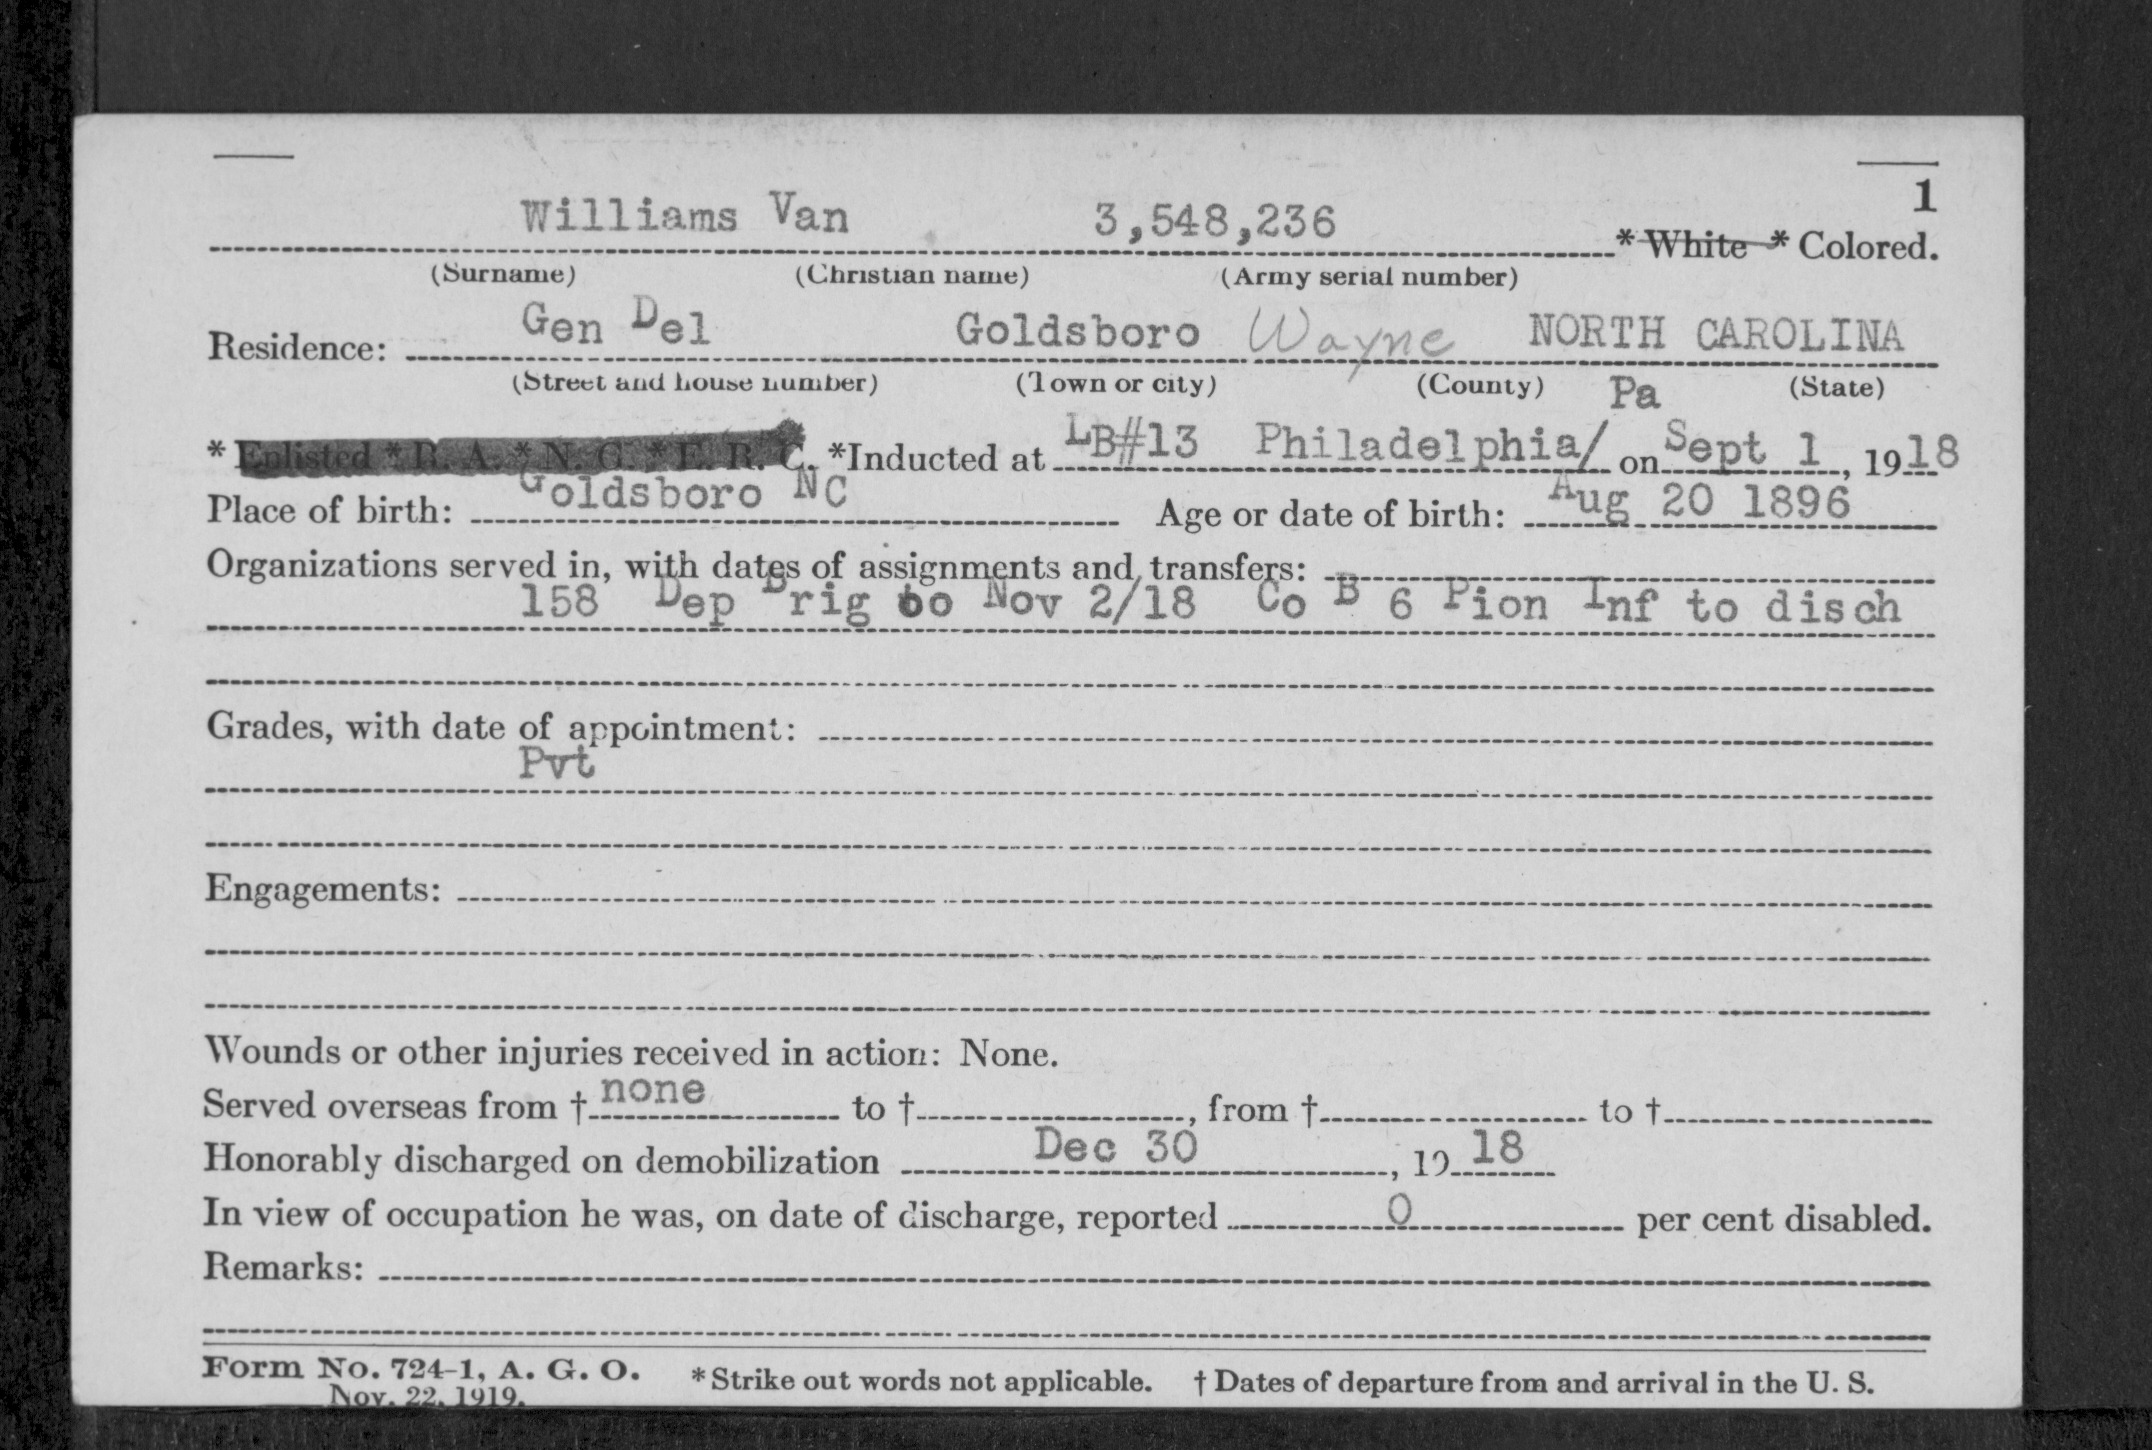 1
Williams Van 3,548,236 * White * Colored.
(Surname) (Christian name) (Army serial number)
Residence: Gen Del Goldsboro Wayne NORTH CAROLINA
(Street and house number) (Town or city) (County) (State)
Pa
* Enlisted * R. A. * N. G. * E. R. C. *Inducted at LB#13 Philadelphia/ on Sept 1, 1918
Place of birth: Goldsboro NC Age or date of birth: Aug 20 1896
Organizations served in, with dates of assignments and transfers:
158 Dep Brig to Nov 2/18 Co B 6 Pion Inf to disch
Grades, with date of appointment:
Pvt
Engagements:
Wounds or other injuries received in action: None.
Served overseas from † none to †, from † to †
Honorably discharged on demobilization Dec 30, 19 18
In view of occupation he was, on date of discharge, reported 0 per cent disabled.
Remarks:
Form No. 724-1, A. G. O. * Strike out words not applicable. † Dates of departure from and arrival in the U. S.
Nov. 22, 1919.